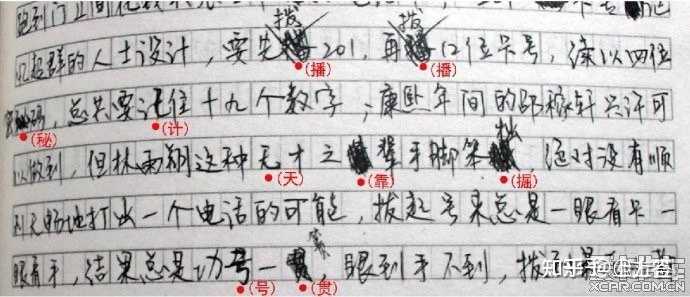 忆超群的人士设计，要先拨201，再拨12位卡号，续以四位
(播) (播)
密码，总共要计住十九个数字；康熙年间的邵稼轩兴许可
(秘) (计)
以做到，但林雨翔这种天才之辈手脚笨拙，绝对没有顺
(天) (靠) (掘)
畅地打出一个电话的可能，拨起号来总是一眼看卡一
眼看手，结果总是功号一篑，眼到手不到，拨
(号) (贯)
知乎
XCAR.COM.CN